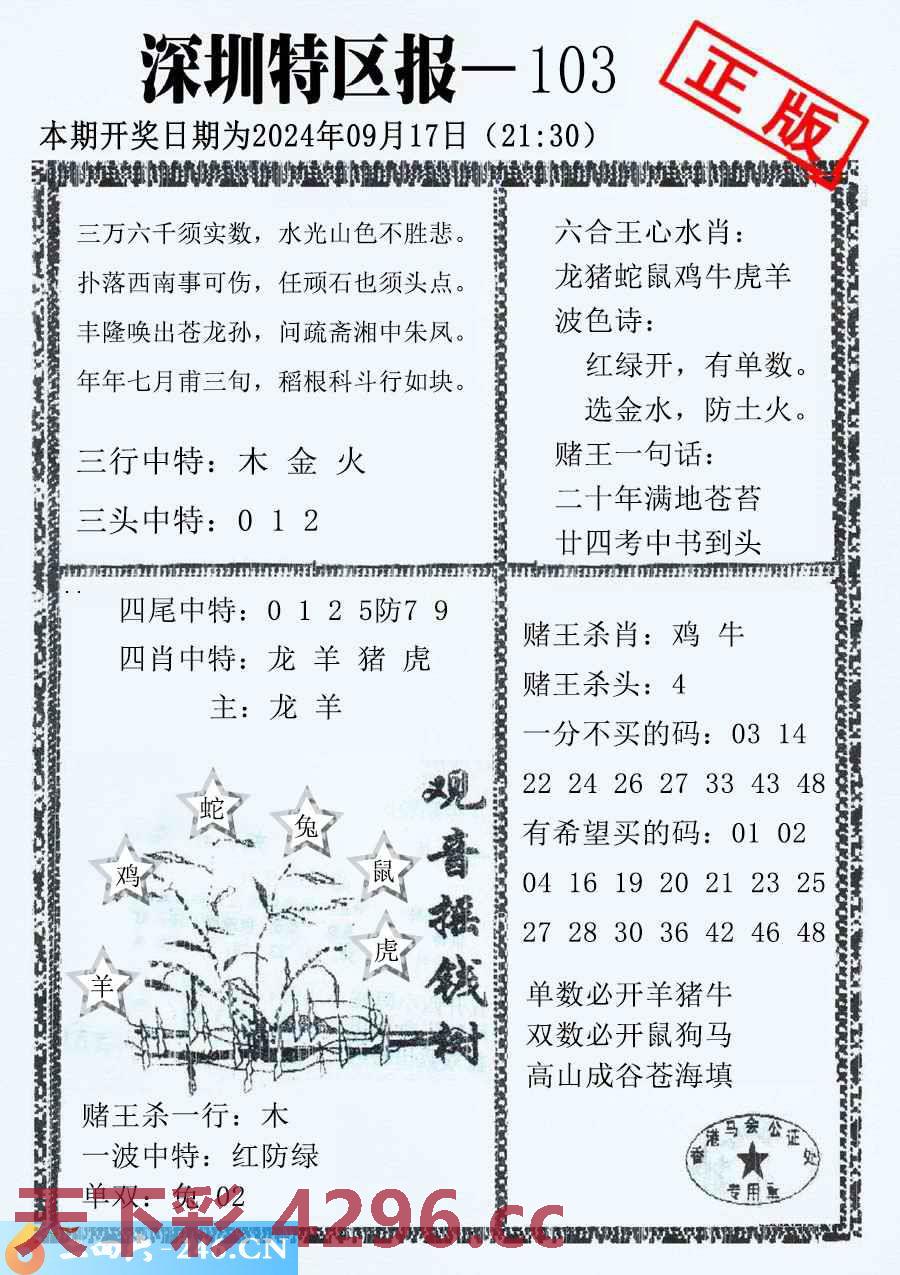 深圳特区报—103
正版
本期开奖日期为2024年09月17日（21:30）
三万六千须实数，水光山色不胜悲。
扑落西南事可伤，任顽石也须头点。
丰隆唤出苍龙孙，问疏斋湘中朱凤。
年年七月甫三旬，稻根科斗行如块。
三行中特：木 金 火
三头中特：0 1 2
六合王心水肖：
龙猪蛇鼠鸡牛虎羊
波色诗：
红绿开，有单数。
选金水，防土火。
赌王一句话：
二十年满地苍苔
廿四考中书到头
四尾中特：0 1 2 5防7 9
四肖中特：龙 羊 猪 虎
主：龙 羊
蛇
兔
鸡
鼠
虎
羊
观音摇钱树
赌王杀一行：木
一波中特：红防绿
单双：兔 02
赌王杀肖：鸡 牛
赌王杀头：4
一分不买的码：03 14
22 24 26 27 33 43 48
有希望买的码：01 02
04 16 19 20 21 23 25
27 28 30 36 42 46 48
单数必开羊猪牛
双数必开鼠狗马
高山成谷苍海填
香港马会公证处
专用章
天下彩 4296.cc